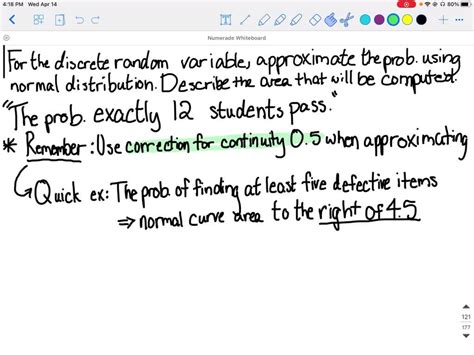 4:18 PM Wed Apr 14
80%
Numerade Whiteboard
For the discrete random variable, approximate the prob. using
normal distribution. Describe the area that will be computed.
"The prob. exactly 12 students pass."
* Remember: Use correction for continuity 0.5 when approximating
Quick ex: The prob. of finding at least five defective items
⇒ normal curve area to the right of 4.5
121
177